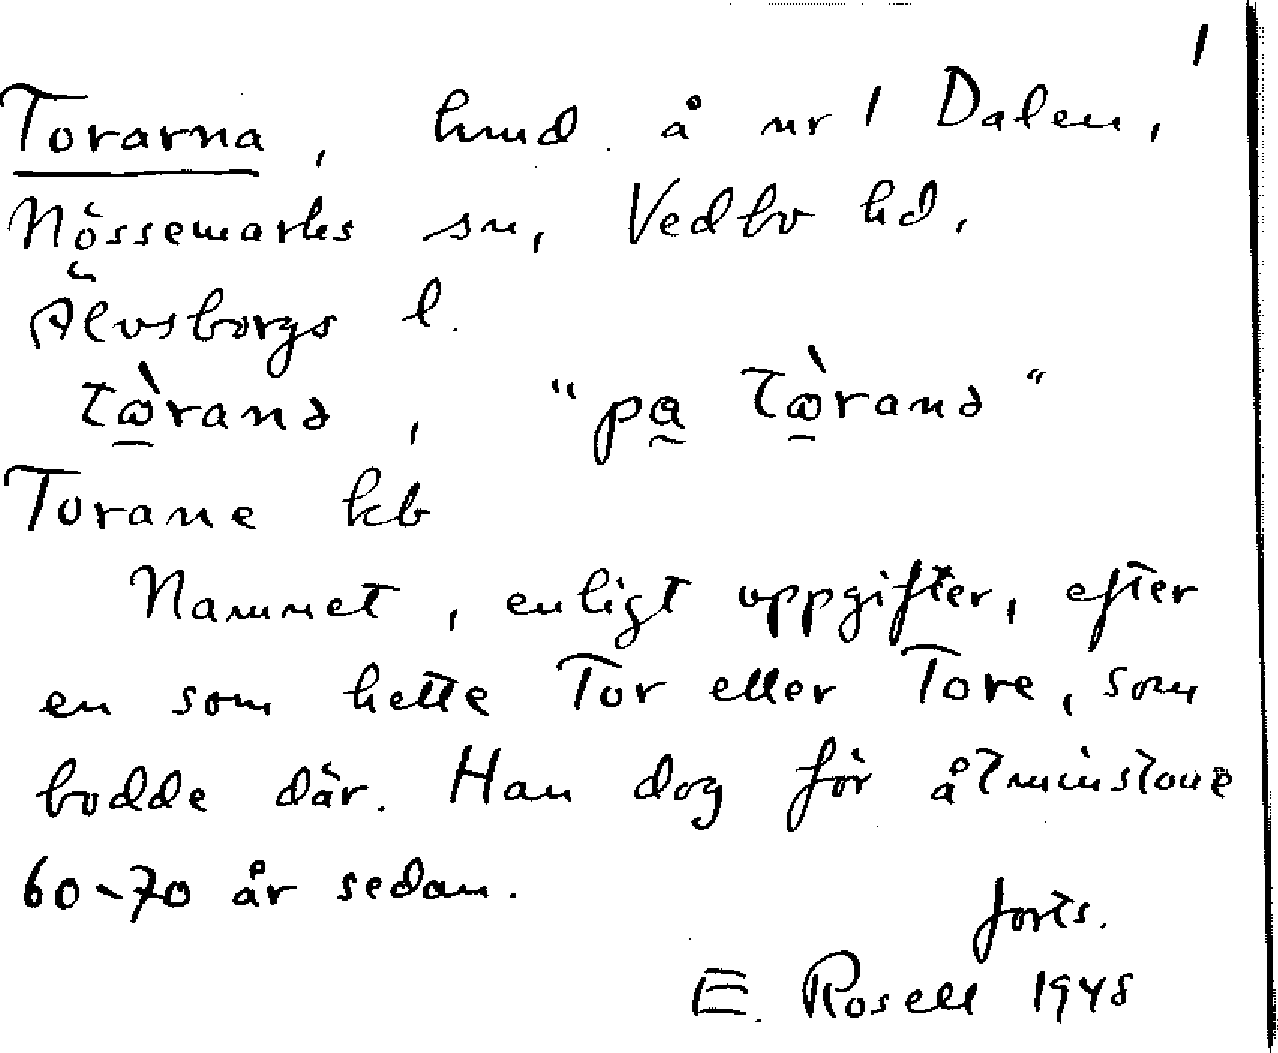 1
Torarna, hmd. å nr 1 Dalen,
Nössemarks sn, Vedbo hd,
Älvsborgs l.
tὼranə, "pa Tὼranə"
Torane kb
Namnet, enligt uppgifter, efter
en som hette Tor eller Tore, som
bodde där. Han dog för åtminstone
60-70 år sedan.
forts.
E. Rosell 1948